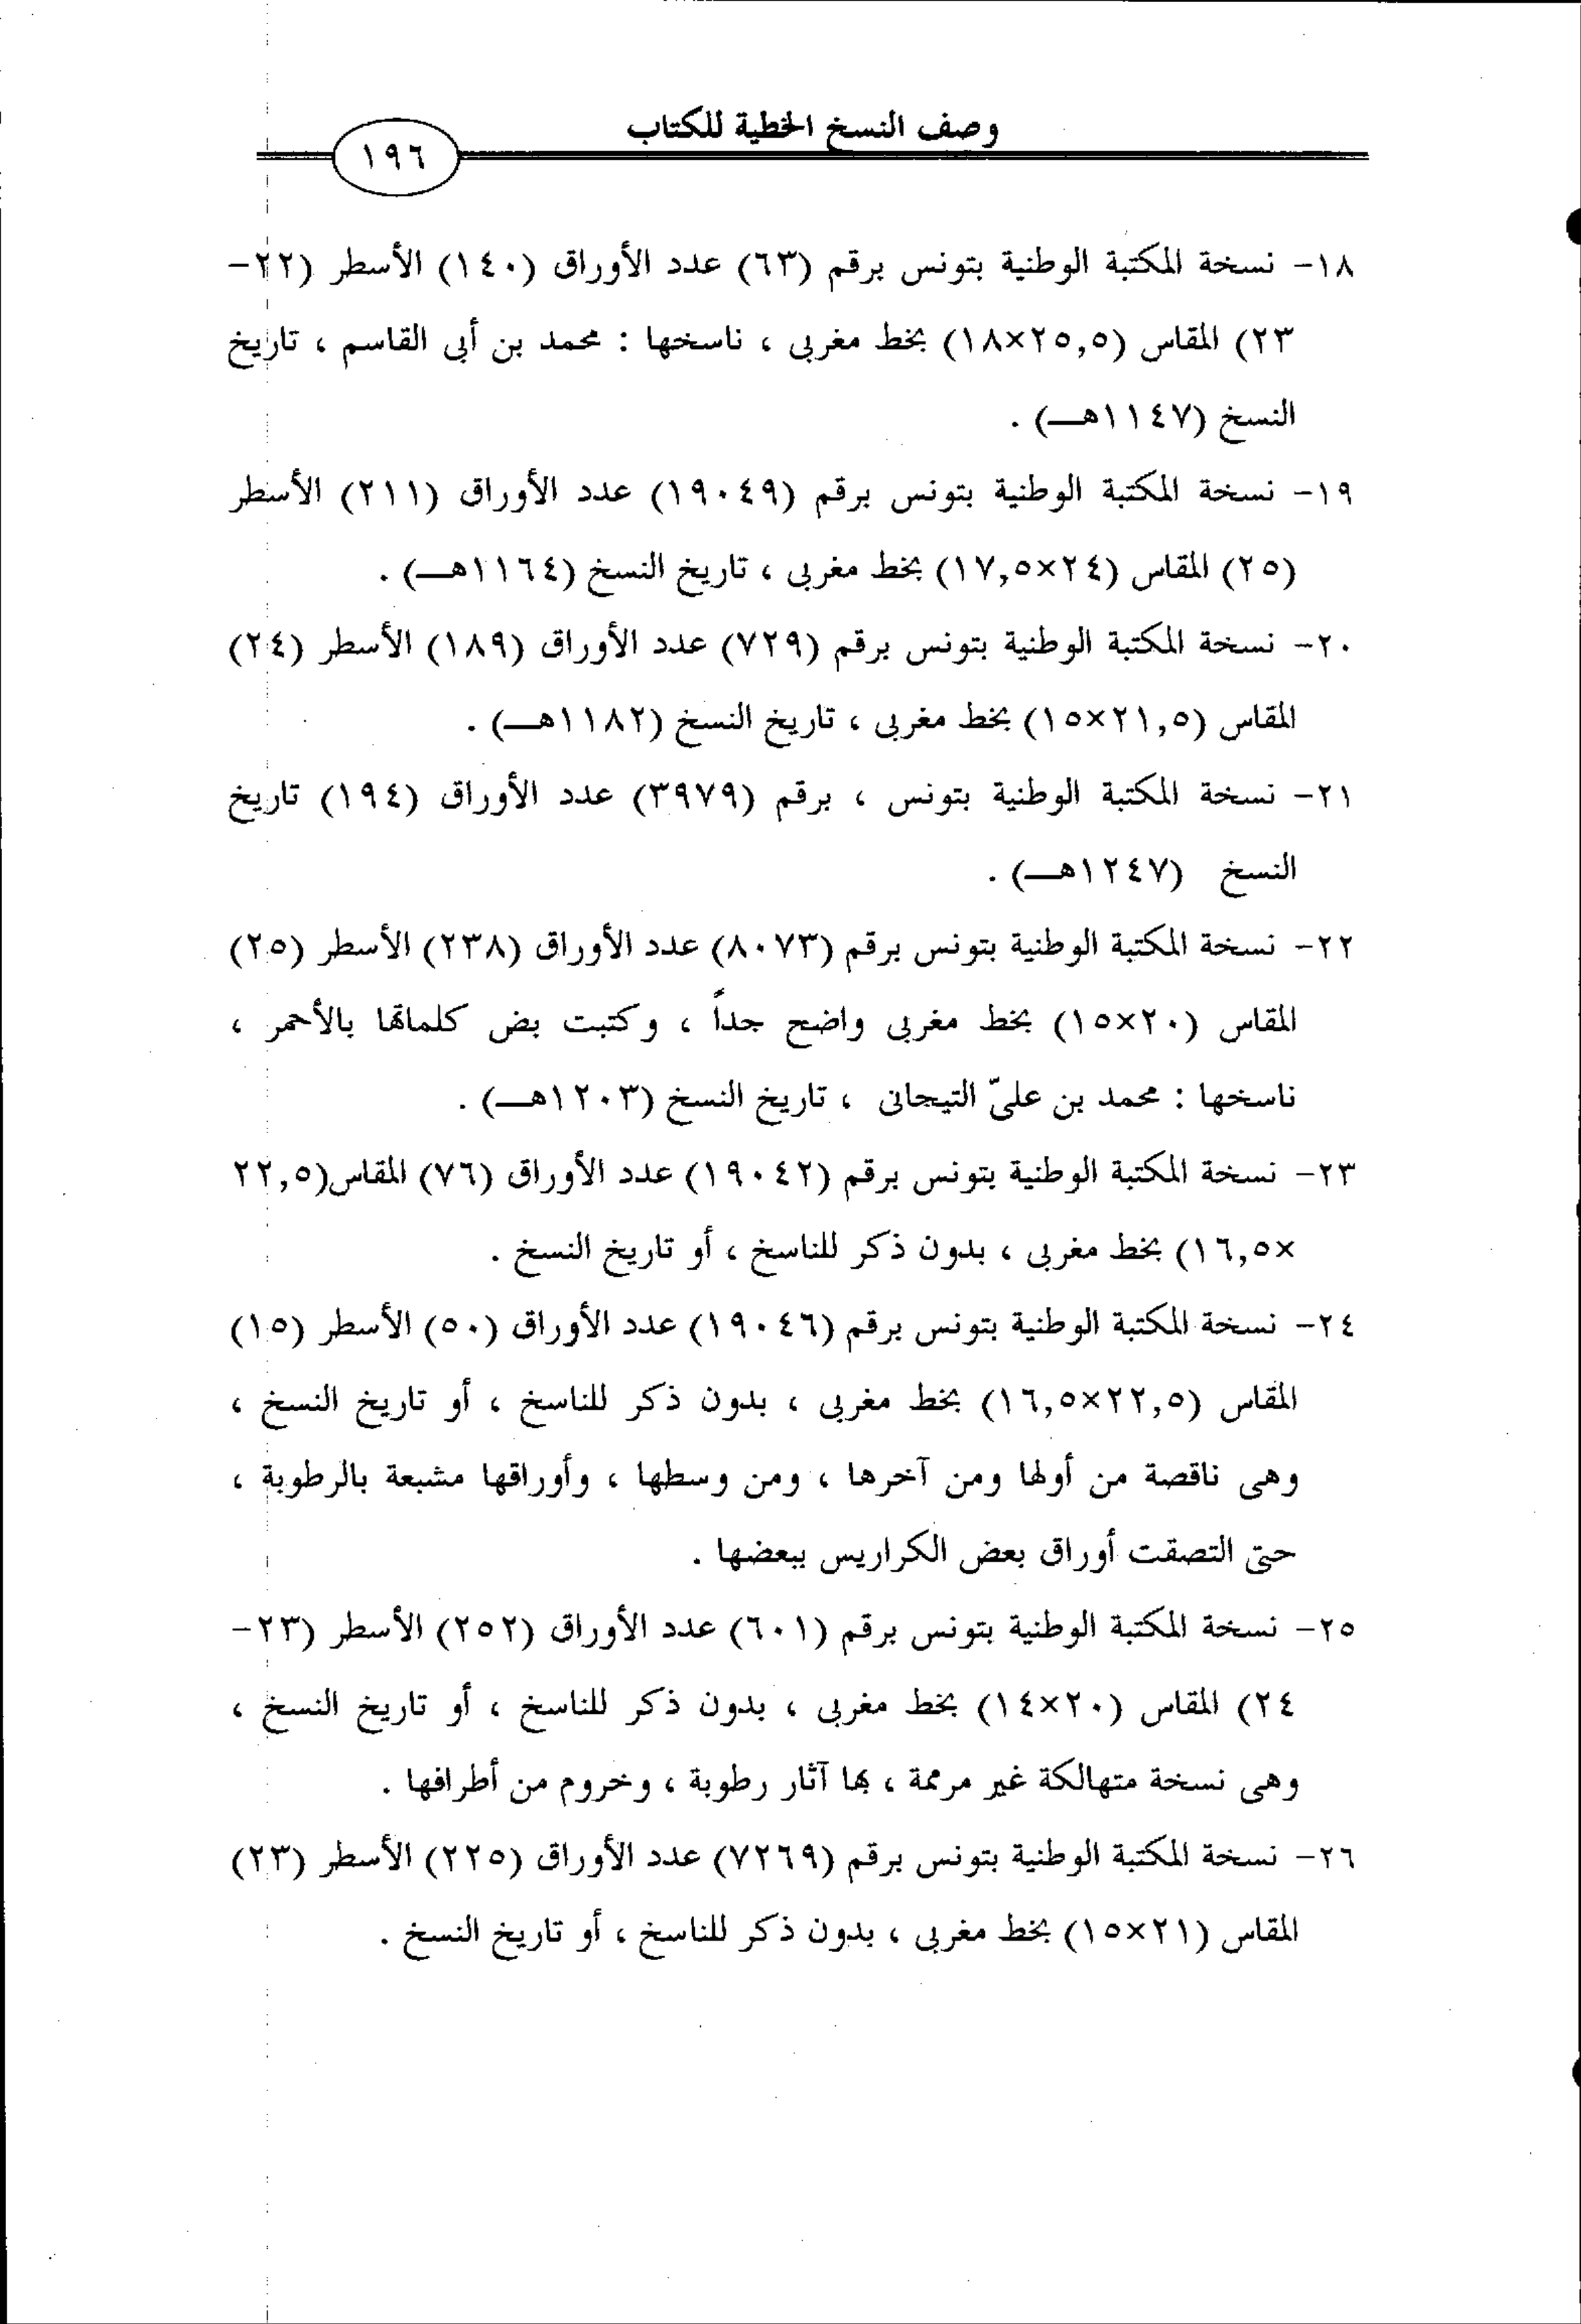 وصف النسخ الخطية للكتاب
١٩٦
١٨- نسخة المكتبة الوطنية بتونس برقم (٦٣) عدد الأوراق (١٤٠) الأسطر (٢٢-
٢٣) المقاس (٢٥,٥×١٨) بخط مغربى ، ناسخها : محمد بن أبى القاسم ، تاريخ
النسخ (١١٤٧هـ) .
١٩- نسخة المكتبة الوطنية بتونس برقم (١٩٠٤٩) عدد الأوراق (٢١١) الأسطر
(٢٥) المقاس (٢٤×١٧,٥) بخط مغربى ، تاريخ النسخ (١١٦٤هـ) .
٢٠- نسخة المكتبة الوطنية بتونس برقم (٧٢٩) عدد الأوراق (١٨٩) الأسطر (٢٤)
المقاس (٢١,٥×١٥) بخط مغربى ، تاريخ النسخ (١١٨٢هـ) .
٢١- نسخة المكتبة الوطنية بتونس ، برقم (٣٩٧٩) عدد الأوراق (١٩٤) تاريخ
النسخ (١٢٤٧هـ) .
٢٢- نسخة المكتبة الوطنية بتونس برقم (٨٠٧٣) عدد الأوراق (٢٣٨) الأسطر (٢٥)
المقاس (٢٠×١٥) بخط مغربى واضح جداً ، وكتبت بض كلماتها بالأحمر ،
ناسخها : محمد بن علىّ التيجانى ، تاريخ النسخ (١٢٠٣هـ) .
٢٣- نسخة المكتبة الوطنية بتونس برقم (١٩٠٤٢) عدد الأوراق (٧٦) المقاس(٢٢,٥
×١٦,٥) بخط مغربى ، بدون ذكر للناسخ ، أو تاريخ النسخ .
٢٤- نسخة المكتبة الوطنية بتونس برقم (١٩٠٤٦) عدد الأوراق (٥٠) الأسطر (١٥)
المقاس (٢٢,٥×١٦,٥) بخط مغربى ، بدون ذكر للناسخ ، أو تاريخ النسخ ،
وهى ناقصة من أولها ومن آخرها ، ومن وسطها ، وأوراقها مشبعة بالرطوبة ،
حتى التصقت أوراق بعض الكراريس ببعضها .
٢٥- نسخة المكتبة الوطنية بتونس برقم (٦٠١) عدد الأوراق (٢٥٢) الأسطر (٢٣-
٢٤) المقاس (٢٠×١٤) بخط مغربى ، بدون ذكر للناسخ ، أو تاريخ النسخ ،
وهى نسخة متهالكة غير مرممة ، بها آثار رطوبة ، وخروم من أطرافها .
٢٦- نسخة المكتبة الوطنية بتونس برقم (٧٢٦٩) عدد الأوراق (٢٢٥) الأسطر (٢٣)
المقاس (٢١×١٥) بخط مغربى ، بدون ذكر للناسخ ، أو تاريخ النسخ .